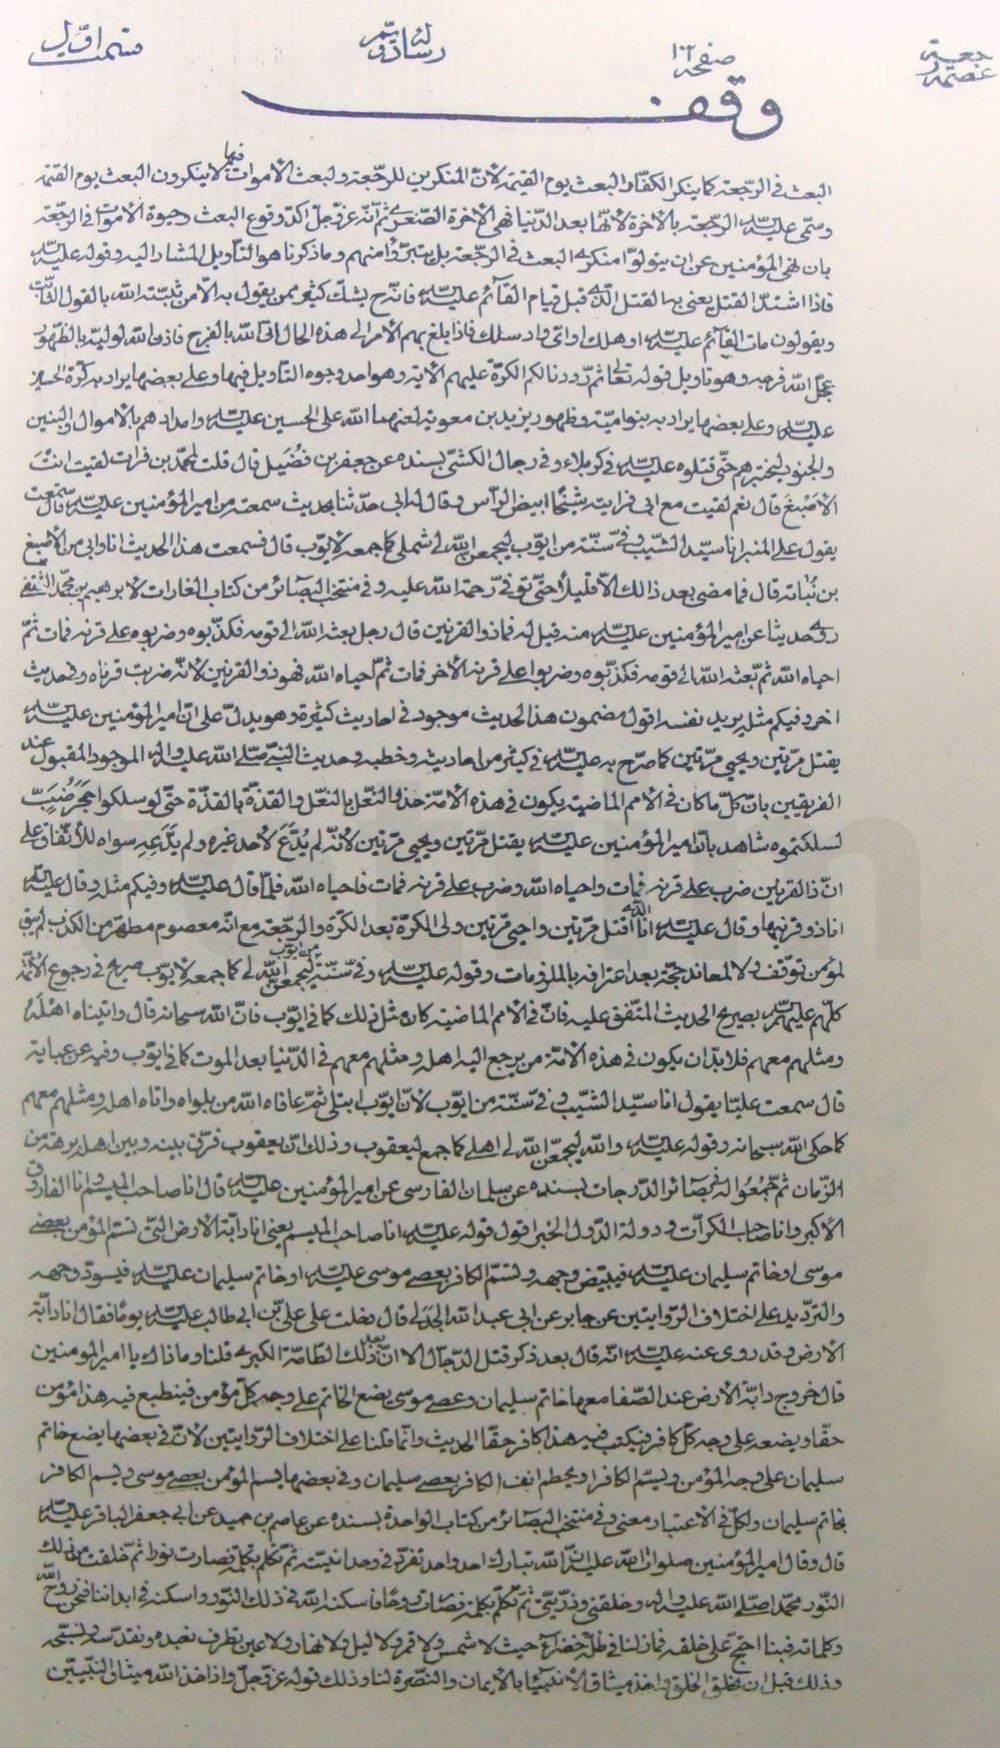 قسمت اول
رسالة دويم
صفحه ١٠٢
رجعة عصمة و
وقف
البعث في الرجعة كما ينكر الكفار البعث يوم القيمة لان المنكرين للرجعة ولبعث الاموات فيها لا ينكرون البعث يوم القيمة
وسمى عليه السلام الرجعة بالاخرة لانها بعد الدنيا فهي الاخرة الصغرى ثم انه عز وجل اكد وقوع البعث وحيوة الاموات في الرجعة
بان نهى المؤمنين عن ان يتولوا منكرى البعث في الرجعة بل يتبرؤا منهم وما ذكرنا هو التأويل المشار اليه وقوله عليه السلام
فاذا اشتد القتل يعني بها لقتل الذى قبل قيام القائم عليه السلام فانه ح يشك كثير ممن يقول به الا من ثبته الله بالقول الثابت
ويقولون مات القائم عليه السلام او هلك او اى واد سلك فاذا بلغ بهم الامر الى هذه الحال اتى الله بالفرج فاذن الله لوليه بالظهور
عجل الله فرجه وهو تاويل قوله تعالى ثم رددنا لكم الكرة عليهم الاية وهو احد وجوه التأويل فيها وعلى بعضها يراد به كرة الحسين
عليه السلام وعلى بعضها يراد به بنو امية وظهور يزيد بن معوية لعنهما الله على الحسين عليه السلام وامدادهم بالاموال والبنين
والجنود ليختبرهم حتى قتلوه عليه السلام في كربلاء وفي رجال الكشى بسنده عن جعفر بن فضيل قال قلت لمحمد بن فرات لقيت انت
الاصبغ قال نعم لقيت مع ابى فرايته شيخا ابيض الراس وقال له ابى حدثنا بحديث سمعته من امير المؤمنين عليه السلام قال سمعته
يقول على المنبر انا سيد الشيب وفي سنة من ايوب ليجمعن الله لى شملى كما جمعه لايوب قال فسمعت هذا الحديث انا وابى من الاصبغ
بن نباته قال فما مضى بعد ذالك الا قليلا حتى توفى رحمة الله عليه وفي منتخب البصائر من كتاب الغارات لابرهيم بن محمد الثقفى
روى حديثا عن امير المؤمنين عليه السلام منه قيل له فما ذو القرنين قال رجل بعثه الله الى قومه فكذبوه وضربوه على قرنه فمات ثم
احياه الله ثم بعثه الله الى قومه فكذبوه وضربوا على قرنه الاخر فمات ثم احياه الله فهو ذو القرنين لانه ضربت قرناه وفي حديث
اخر وفيكم مثله يريد نفسه اقول مضمون هذا الحديث موجود في احاديث كثيرة وهو يدل على ان امير المؤمنين عليه السلام
يقتل مرتين ويحيى مرتين كما صرح به عليه السلام في كثير من احاديثه وخطبه وحديث النبي صلى الله عليه واله الموجود المقبول عند
الفريقين بان كل ما كان في الامم الماضية يكون في هذه الامة حذو النعل بالنعل والقذة بالقذة حتى لو سلكوا جحر ضب
لسلكتموه شاهد بان امير المؤمنين عليه السلام يقتل مرتين ويحيى مرتين لانه لم يدع لاحد غيره ولم يدعه سواه للاتفاق على
ان ذا القرنين ضرب على قرنه فمات واحياه الله وضرب على قرنه فمات فاحياه الله فلما قال عليه السلام وفيكم مثله وقال عليه السلام
انا ذو قرنيها وقال عليه السلام انا الذى اقتل مرتين واحيى مرتين ولى الكرة بعد الكرة والرجعة مع انه معصوم مطهر من الكذب لم يبق
لمؤمن توقف ولا لمعاند حجة بعد اعترافه بالملزومات وقوله عليه السلام وفي سنة من ايوب ليجمعن الله لى كما جمعه لايوب صريح في رجوع الائمة
كلهم عليهم السلام بصريح الحديث المتفق عليه فان في الامم الماضية كان مثل ذلك كما في ايوب فان الله سبحانه قال واتيناه اهله
ومثلهم معهم فلا بد ان يكون في هذه الامة من يرجع اليه اهله ومثلهم معهم في الدنيا بعد الموت كما في ايوب وفيه عن عباية
قال سمعت عليا يقول انا سيد الشيب وفي سنة من ايوب لان ايوب ابتلى ثم عافاه الله من بلواه واتاه اهله ومثلهم معهم
كما حكى الله سبحانه وقوله عليه السلام والله ليجمعن الله لى اهلى كما جمع ليعقوب وذلك ان يعقوب فرق بينه وبين اهله برهة من
الزمان ثم جمعوا له في بصائر الدرجات بسنده عن سلمان الفارسى عن امير المؤمنين عليه السلام قال انا صاحب الميسم وانا الفاروق
الاكبر وانا صاحب الكرات ودولة الدول الخبر اقول قوله عليه السلام انا صاحب الميسم يعنى انا دابة الارض التى تسم المؤمن بعصى
موسى او خاتم سليمان عليه السلام فيبيض وجهه وتسم الكافر بعصى موسى عليه السلام او خاتم سليمان عليه السلام فيسود وجهه
والترديد على اختلاف الروايتين عن جابر عن ابى عبد الله الجدلى قال دخلت على على بن ابى طالب عليه السلام يوما فقال انا دابة
الارض وقد روى عنه عليه السلام انه قال بعد ذكر قتل الدجال الا ان بعد ذلك الطامة الكبرى قلنا وما ذاك يا امير المؤمنين
قال خروج دابة الارض عند الصفا معها خاتم سليمان وعصى موسى يضع الخاتم على وجه كل مؤمن فينطبع فيه هذا مؤمن
حقا ويضعه على وجه كل كافر فيكتب فيه هذا كافر حقا الحديث وانما قلنا على اختلاف الروايتين لان في بعضها يضع خاتم
سليمان على وجه المؤمن ويسم الكافر او يحطم انف الكافر بعصى سليمان وفي بعضها يسم المؤمن بعصى موسى ويسم الكافر
بخاتم سليمان ولكل في الاعتبار معنى وفي منتخب البصائر من كتاب الواحدة بسنده عن عاصم بن حميد عن ابى جعفر الباقر عليه السلام
قال وقال امير المؤمنين صلوات الله عليه ان الله تبارك احد واحد تفرد في وحدانيته ثم تكلم بكلمة فصارت نورا ثم خلقت من ذلك
النور محمدا صلى الله عليه واله وخلقنى وذريتى ثم تكلم بكلمة فصارت روحا فاسكنه الله في ذلك النور واسكنه في ابداننا فنحن روح الله
وكلماته فبنا احتج على خلقه فما زلنا في ظلة خضراء حيث لا شمس ولا قمر ولا ليل ولا نهار ولا عين تطرف نعبده ونقدسه ونسبحه
وذلك قبل ان يخلق الخلق واخذ ميثاق الانبيآء بالايمان والنصرة لنا وذلك قوله عز وجل واذ اخذ الله ميثاق النبيين